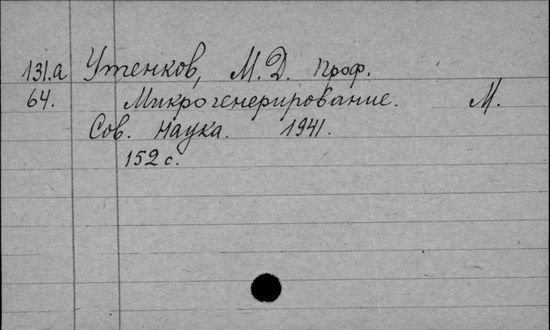 131.а Утенков, М. Д. проф.
64. Микрогенерирование. М.
Сов. наука. 1941.
152 с.